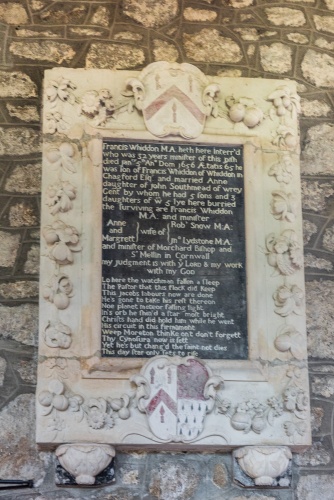 Francis Whiddon M.A. lieth here Interr'd
who was 32 years minister of this psh
died Jan 5th An° Dom 1656 Ætatis 69
was son of Francis Whiddon of Whiddon in
Chagford Esqr and married Anne
daughter of John Southmead of wrey
Gent by whom he had 5 sons and 3
daughters of wch 5 lye here buried
the surviving are Francis Whiddon
M.A. and minister
Anne and Margrett } wife of { Rob' Snow M.A: Jn° Lydstone M.A:
and minister of Morchard Bishop and
St Mellin in Cornwall
my judgment is with ye Lord & my work
with my God
Lo here the watchman fallen a sleep
The Pastor that this flock did keep
This Jacobs labours now are done
He's gone to take his rest thereon
Noe planet meteor falling light
In's orb he liv'd a star most bright
Christs hand did hold him while he went
His circuit in this firmament
Weep Moreton think on't don't forgett
Thy Cynosura now is sett
Yet he's but chang'd the saint not dies
This day star only sets to rise